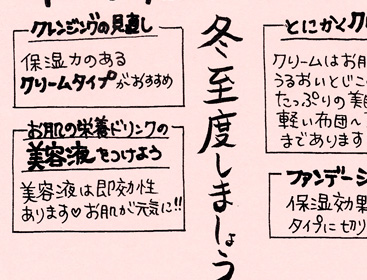 クレンジングの見直し
保湿力のある
クリームタイプがおすすめ
お肌の栄養ドリンクの
美容液をつけよう
美容液は即効性
あります♡お肌が元気に!!
冬至度しましょう
とにかくク
クリームはお肌
うるおいとじこ
たっぷりの美
軽い布団へ
まであります
ファンデーシ
保湿効果
タイプに切り